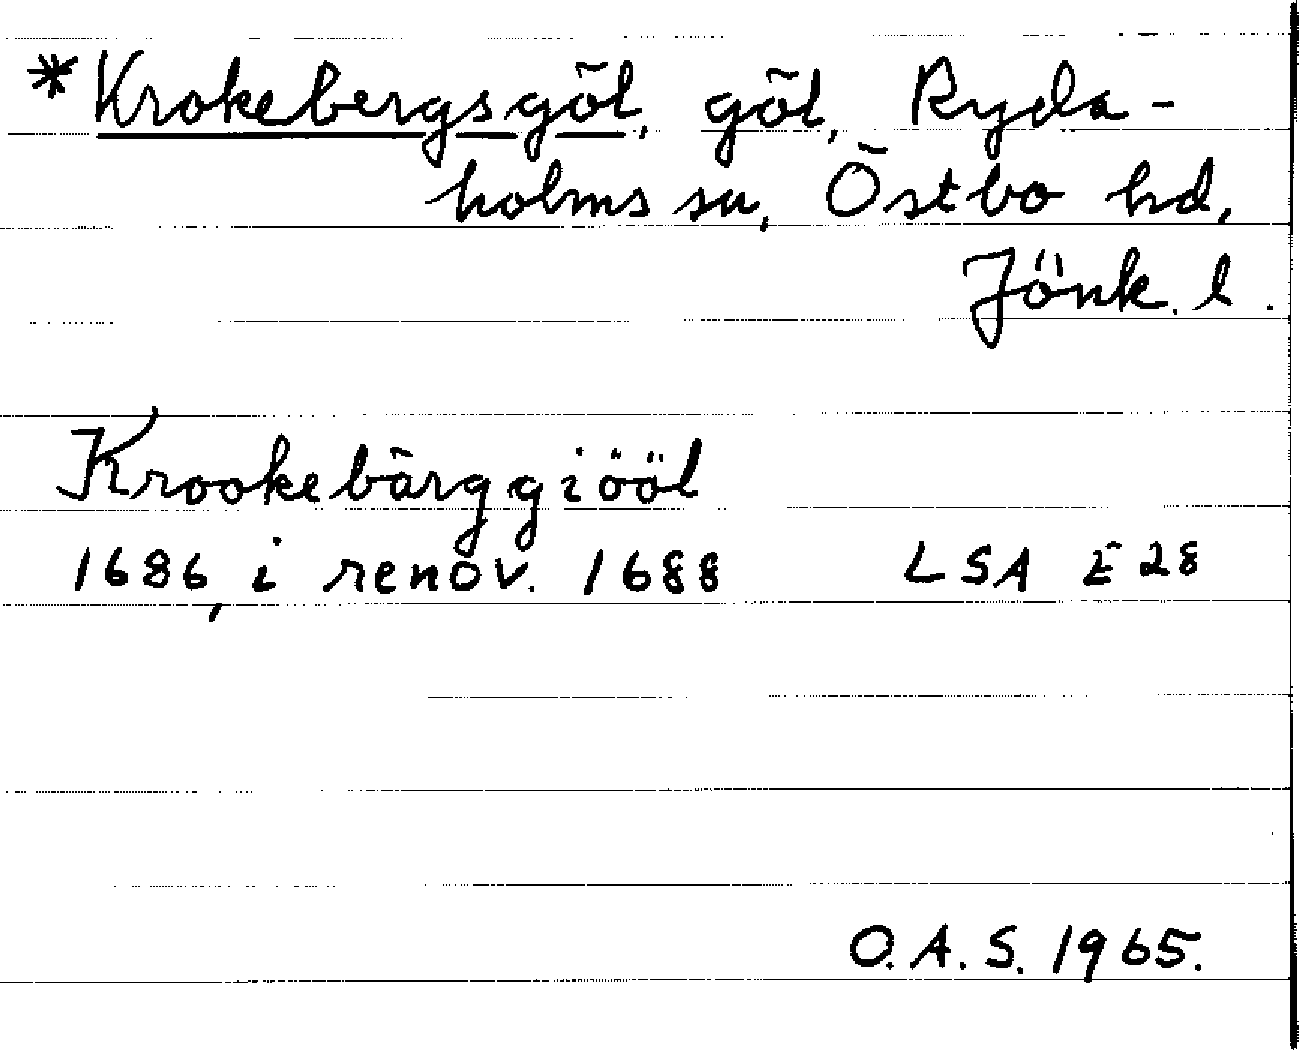 *Krokebergsgöl, göl, Ryda-
holms sn, Östbo hd,
Jönk. l.
Krookebärggiööl
1686, i renov. 1688 LSA E28
O.A.S. 1965.